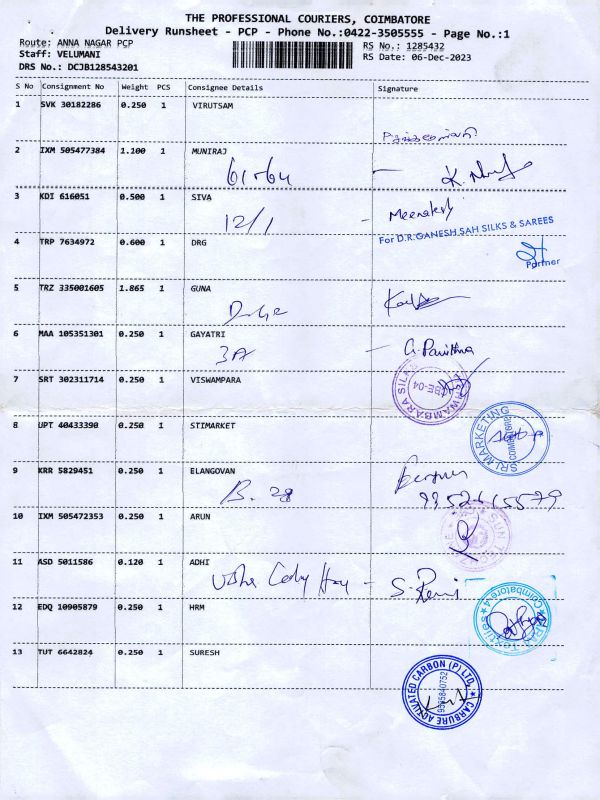 THE PROFESSIONAL COURIERS, COIMBATORE
Delivery Runsheet - PCP - Phone No.:0422-3505555 - Page No.:1
Route: ANNA NAGAR PCP
Staff: VELUMANI
DRS No.: DCJB128543201
RS No.: 1285432
RS Date: 06-Dec-2023
S No Consignment No Weight PCS Consignee Details Signature
1 SVK 30182286 0.250 1 VIRUTSAM
2 IXM 505477384 1.100 1 MUNIRAJ
61-64
3 KDI 616051 0.500 1 SIVA
12/1 - Meenakshi
For D.R.GANESH SAH SILKS & SAREES
4 TRP 7634972 0.600 1 DRG
Partner
5 TRZ 335001605 1.865 1 GUNA
6 MAA 105351301 0.250 1 GAYATRI
3A - G. Pavithra
7 SRT 302311714 0.250 1 VISWAMPARA
CBE-04
8 UPT 40433390 0.250 1 STIMARKET
SRI MARKETING
COIMBATORE
9 KRR 5829451 0.250 1 ELANGOVAN
B. 28
10 IXM 505472353 0.250 1 ARUN
11 ASD 5011586 0.120 1 ADHI
12 EDQ 10905879 0.250 1 HRM
Textiles Coimbatore-4
13 TUT 6642824 0.250 1 SURESH
CARBURE ACTIVATED CARBON (P) LTD,
9585840752